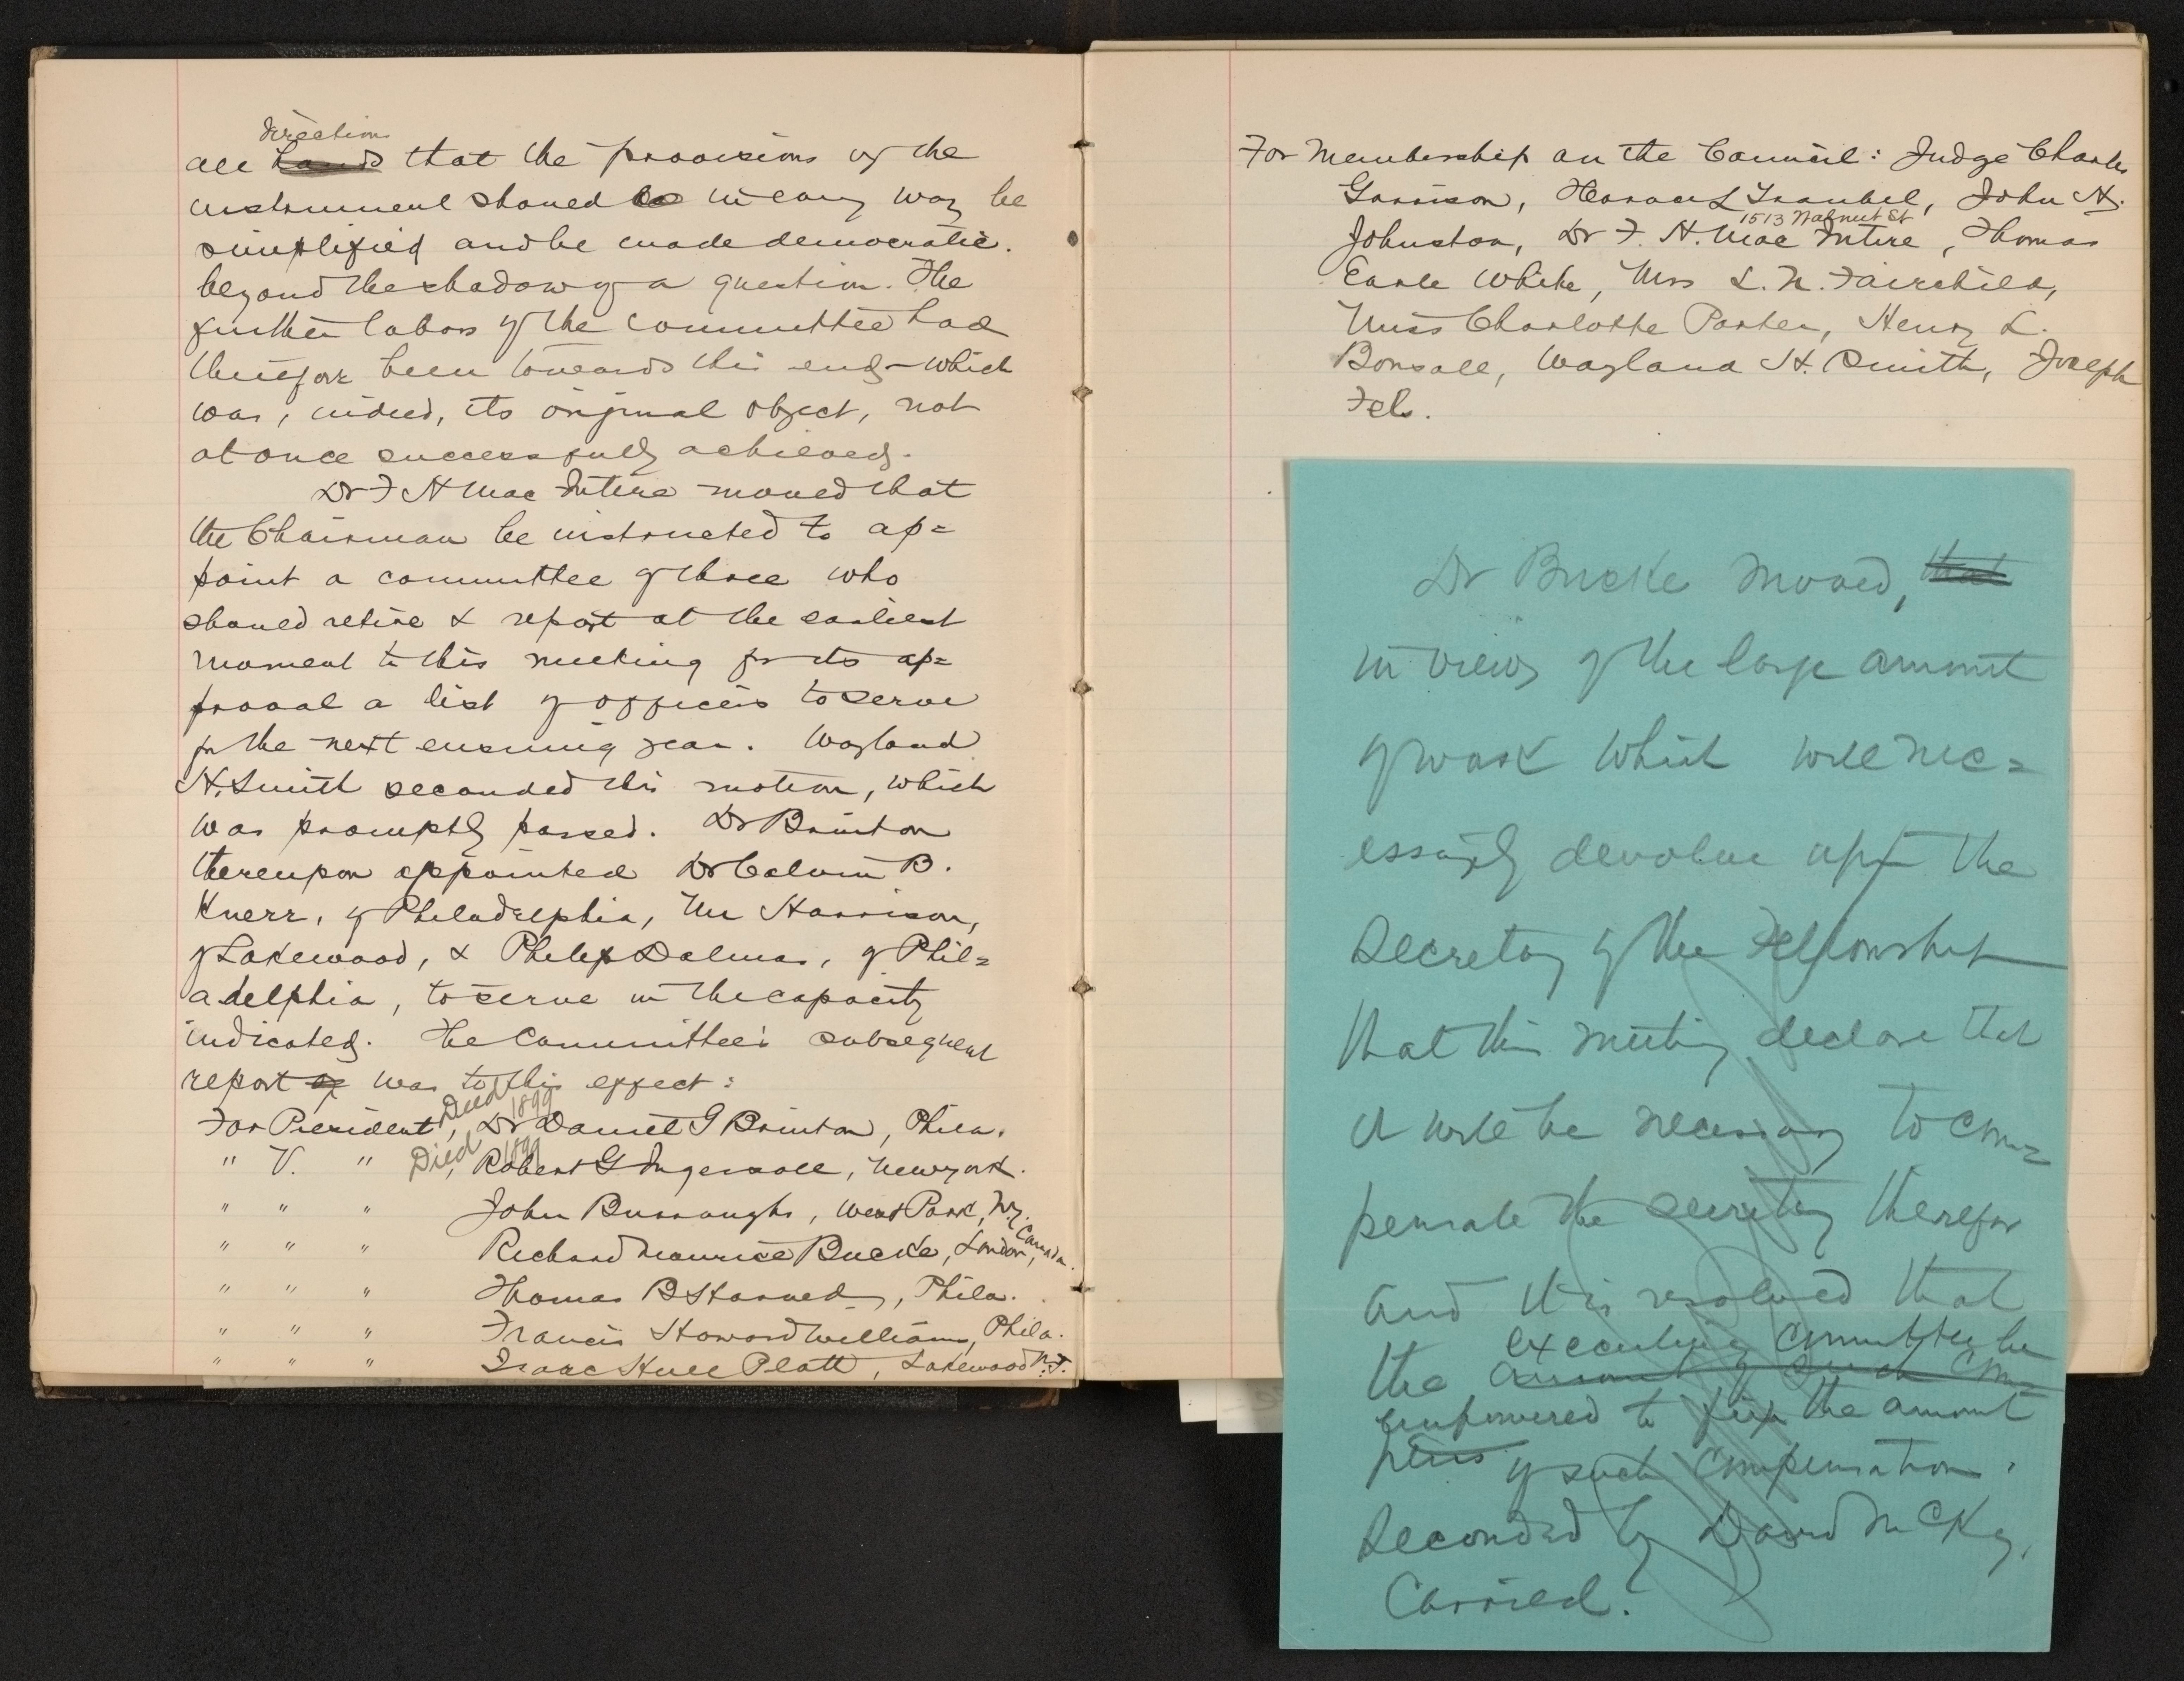 directions
all hands that the provisions of the
instrument should be in every way be
simplified and be made democratic.
beyond the shadow of a question. The
further labors of the committee had
therefore been towards this end – which
was, indeed, its original object, not
at once successfully achieved.
Dr F H Mac Intire moved that
the Chairman be instructed to ap=
point a committee of three who
should retire & report at the earliest
moment to this meeting for its ap=
proval a list of officers to serve
for the next ensuing year. Wayland
H. Smith seconded this motion, which
was promptly passed. Dr Brinton
thereupon appointed Dr Calvin B.
Knerr, of Philadelphia, Mr Harrison,
of Lakewood, & Philip Dalmas, of Phil=
adelphia, to serve in the capacity
indicated. The Committee's subsequent
report of was to this effect:
Died 1899
For President, Dr Daniel G Brinton, Phila.
Died 1899
" V. " , Robert G Ingersoll, New York.
" " " John Burroughs, West Park, N.Y.
" " " Richard Maurice Bucke, London, Canada.
" " " Thomas B Harned, Phila.
" " " Francis Howard Williams, Phila.
" " " Isaac Hull Platt, Lakewood N.J.
For Membership on the Council: Judge Charles
Garrison, Horace L Traubel, John H.
1513 Walnut St
Johnston, Dr F. H. Mac Intire, Thomas
Earle White, Mrs L. N. Fairchild,
Miss Charlotte Porter, Henry L.
Bonsall, Wayland H. Smith, Joseph
Fels.
Dr Bucke moved, that
in view of the large amount
of work which will nec=
essarily devolve upon the
Secretary of the Fellowship
that this meeting declare that
it will be necessary to com=
pensate the secretary therefor
and it is resolved that
executive committee be
the amount of such com=
empowered to fix the amount
pens of such compensation.
Seconded by David McKay.
Carried.